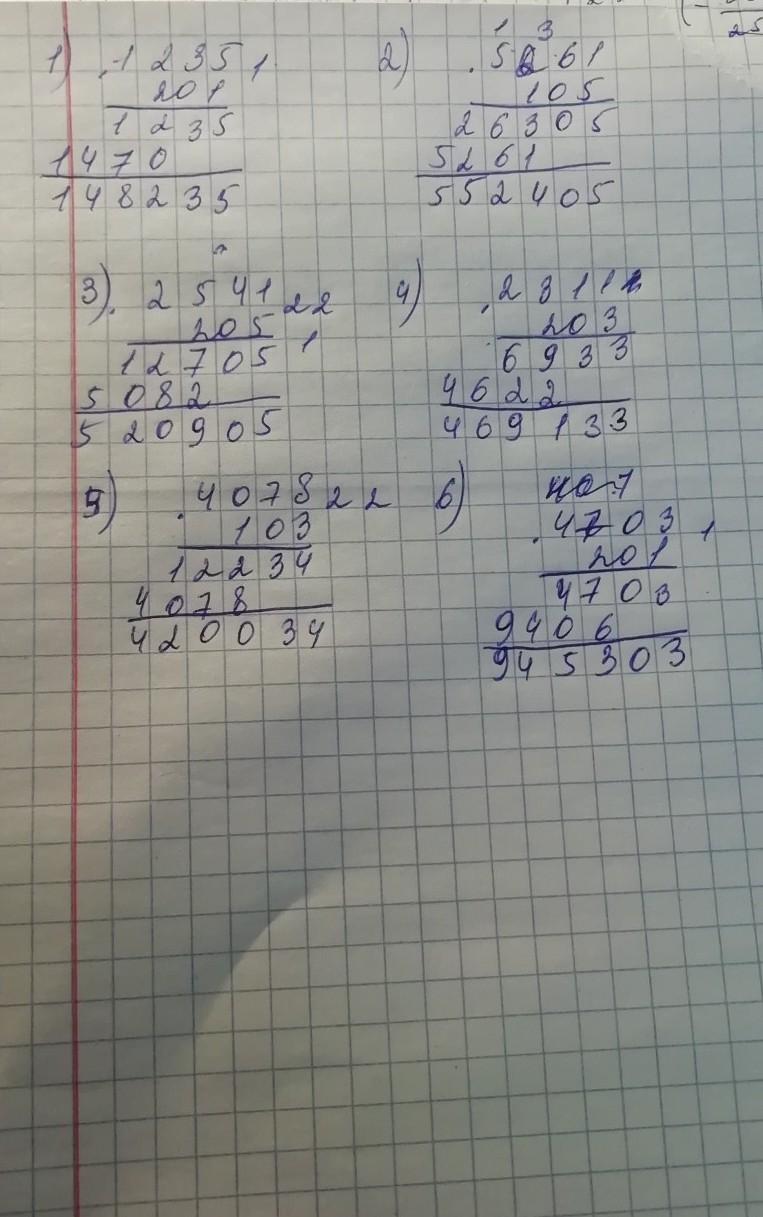 1) 1235 1
201
1235
1470
148235
1 3
2) 5261
105
26305
5261
552405
3) 2541 22
205 1
12705
5082
520905
4) 2311
203
6933
4622
469133
5) 4078 22
103
12234
4078
420034
6)
4703 1
201
4703
9406
945303
25